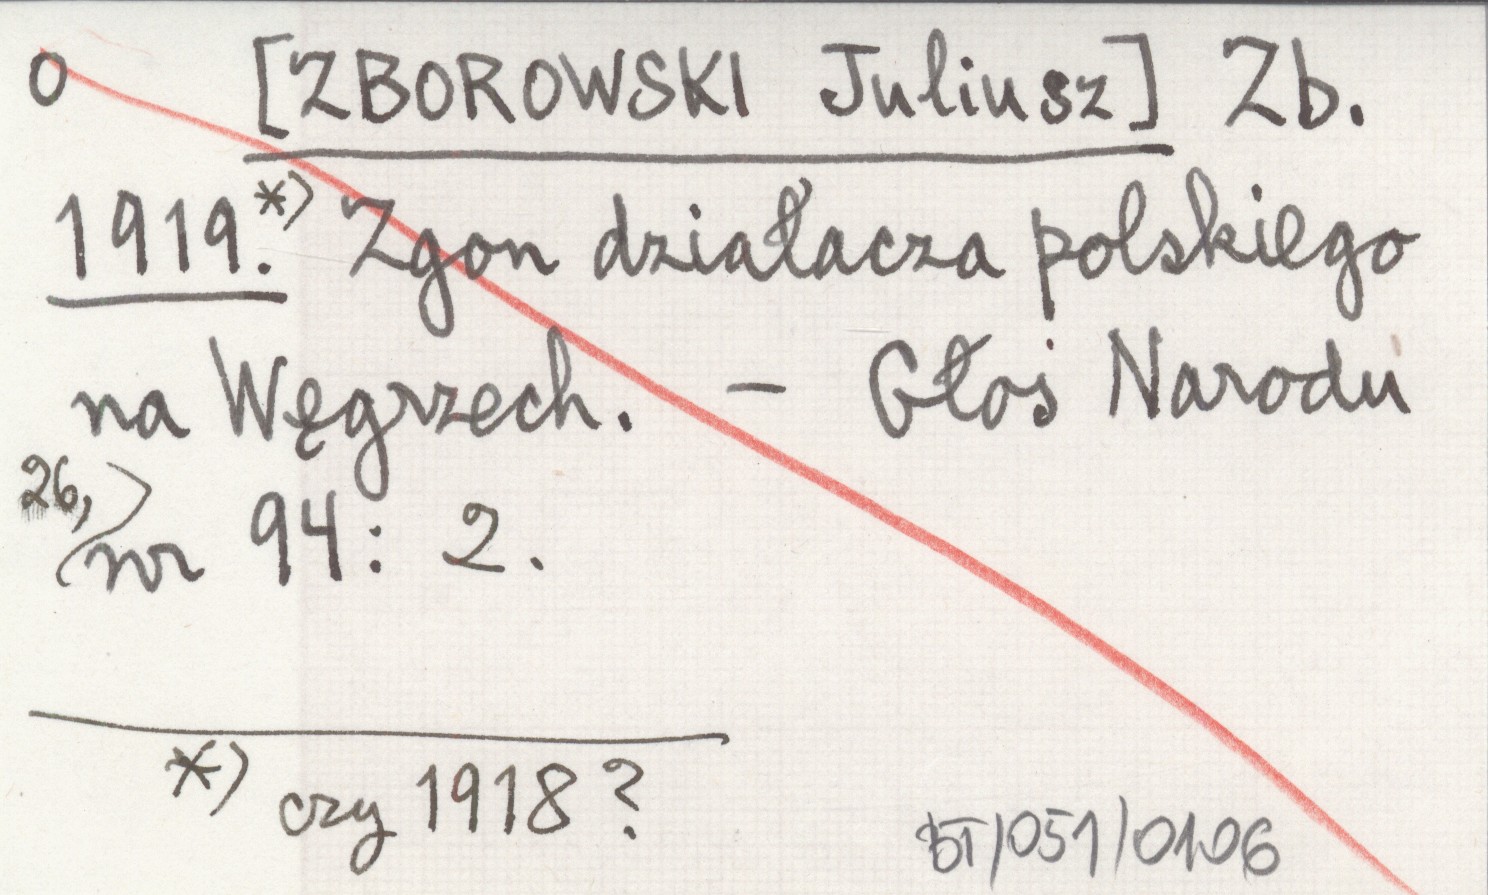 O [ZBOROWSKI Juliusz] Zb.
1919.*) Zgon działacza polskiego
na Węgrzech. – Głos Narodu
26,
nr 94: 2.
*) czy 1918?
BT/051/0106